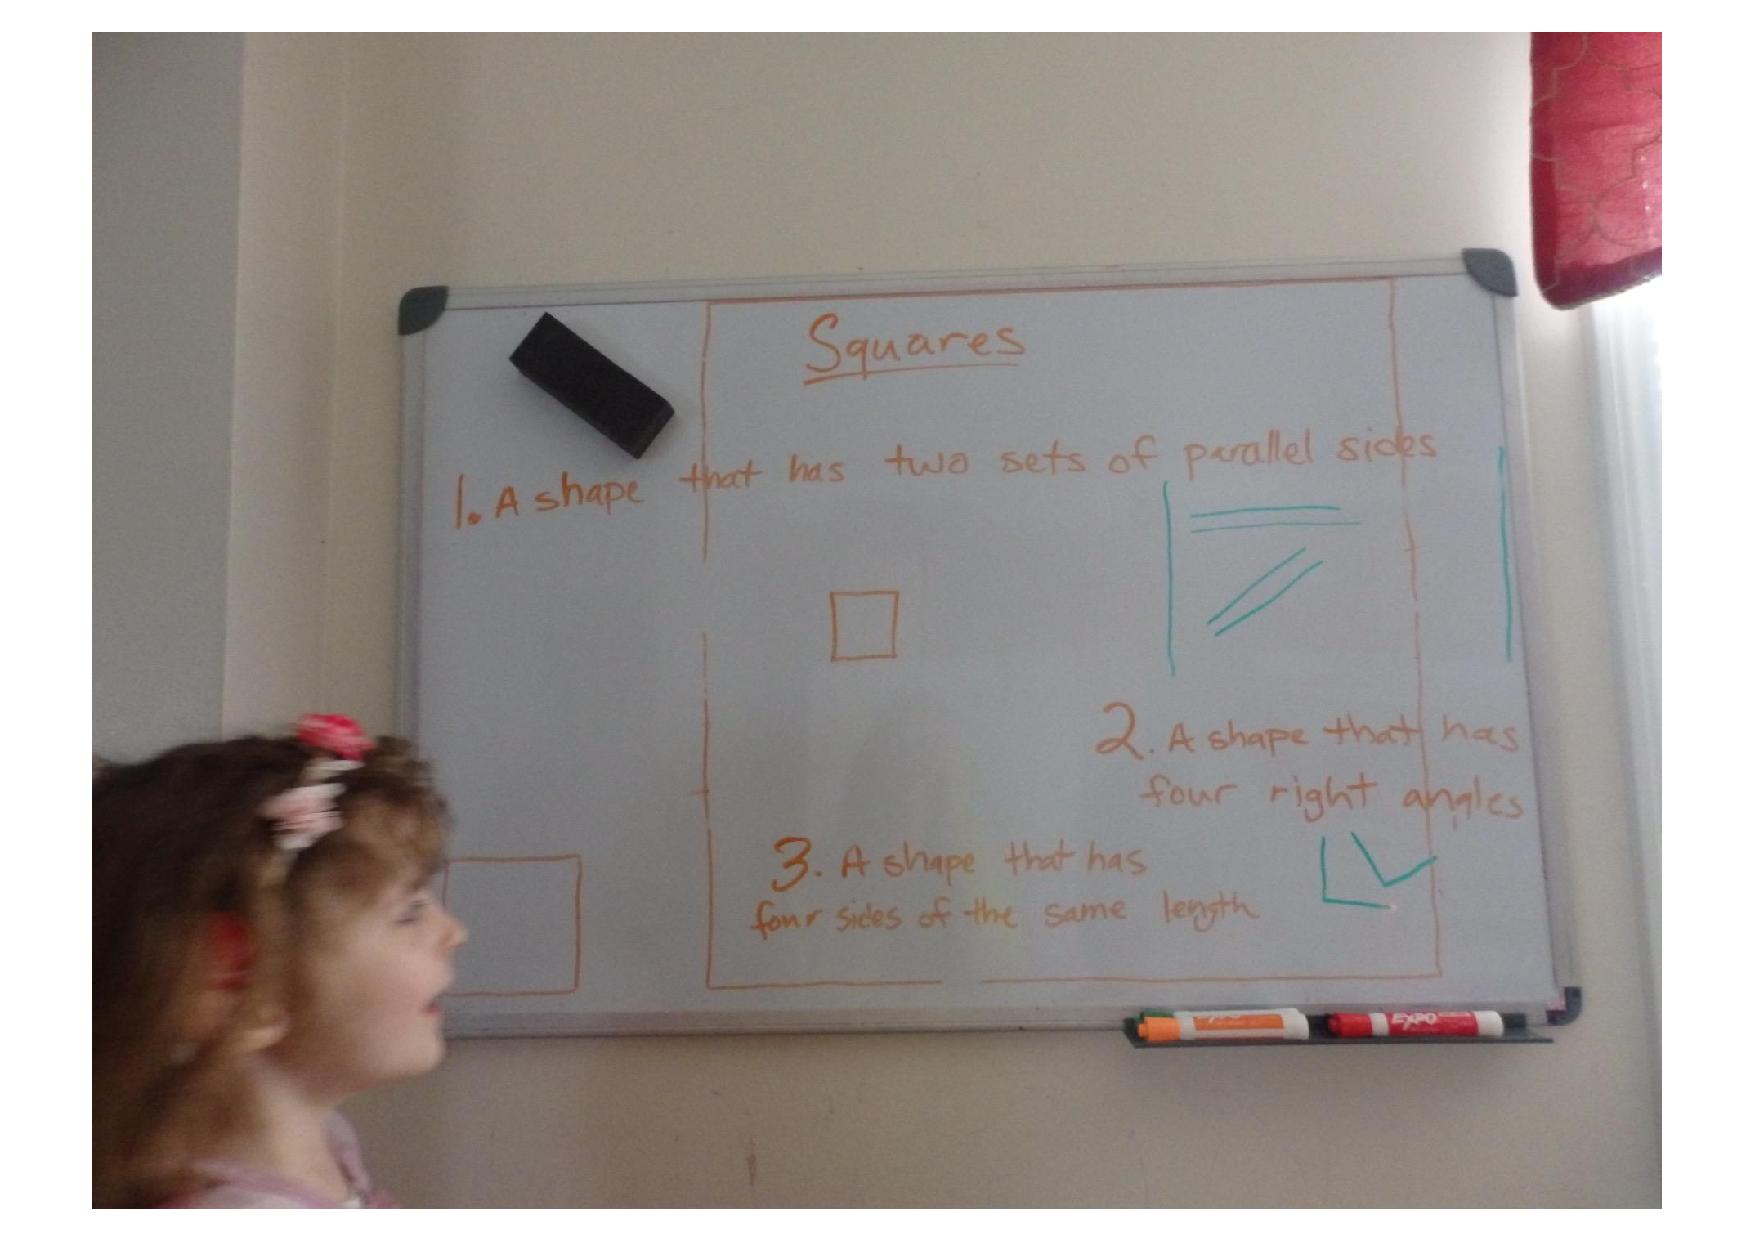 Squares
1. A shape that has two sets of parallel sides
2. A shape that has
four right angles
3. A shape that has
four sides of the same length
EXPO